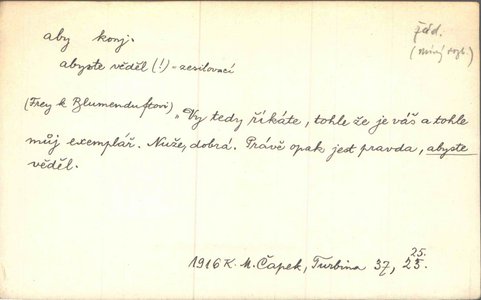 aby konj.
žád.
(mírný rozk.)
abyste věděl (!) - zesilovací
(Frey k Blumenduftovi) „Vy tedy říkáte, tohle že je váš a tohle
můj exemplář. Nuže, dobrá. Právě opak jest pravda, abyste
věděl.
25.
1916 K. M. Čapek, Turbina 37, 23.